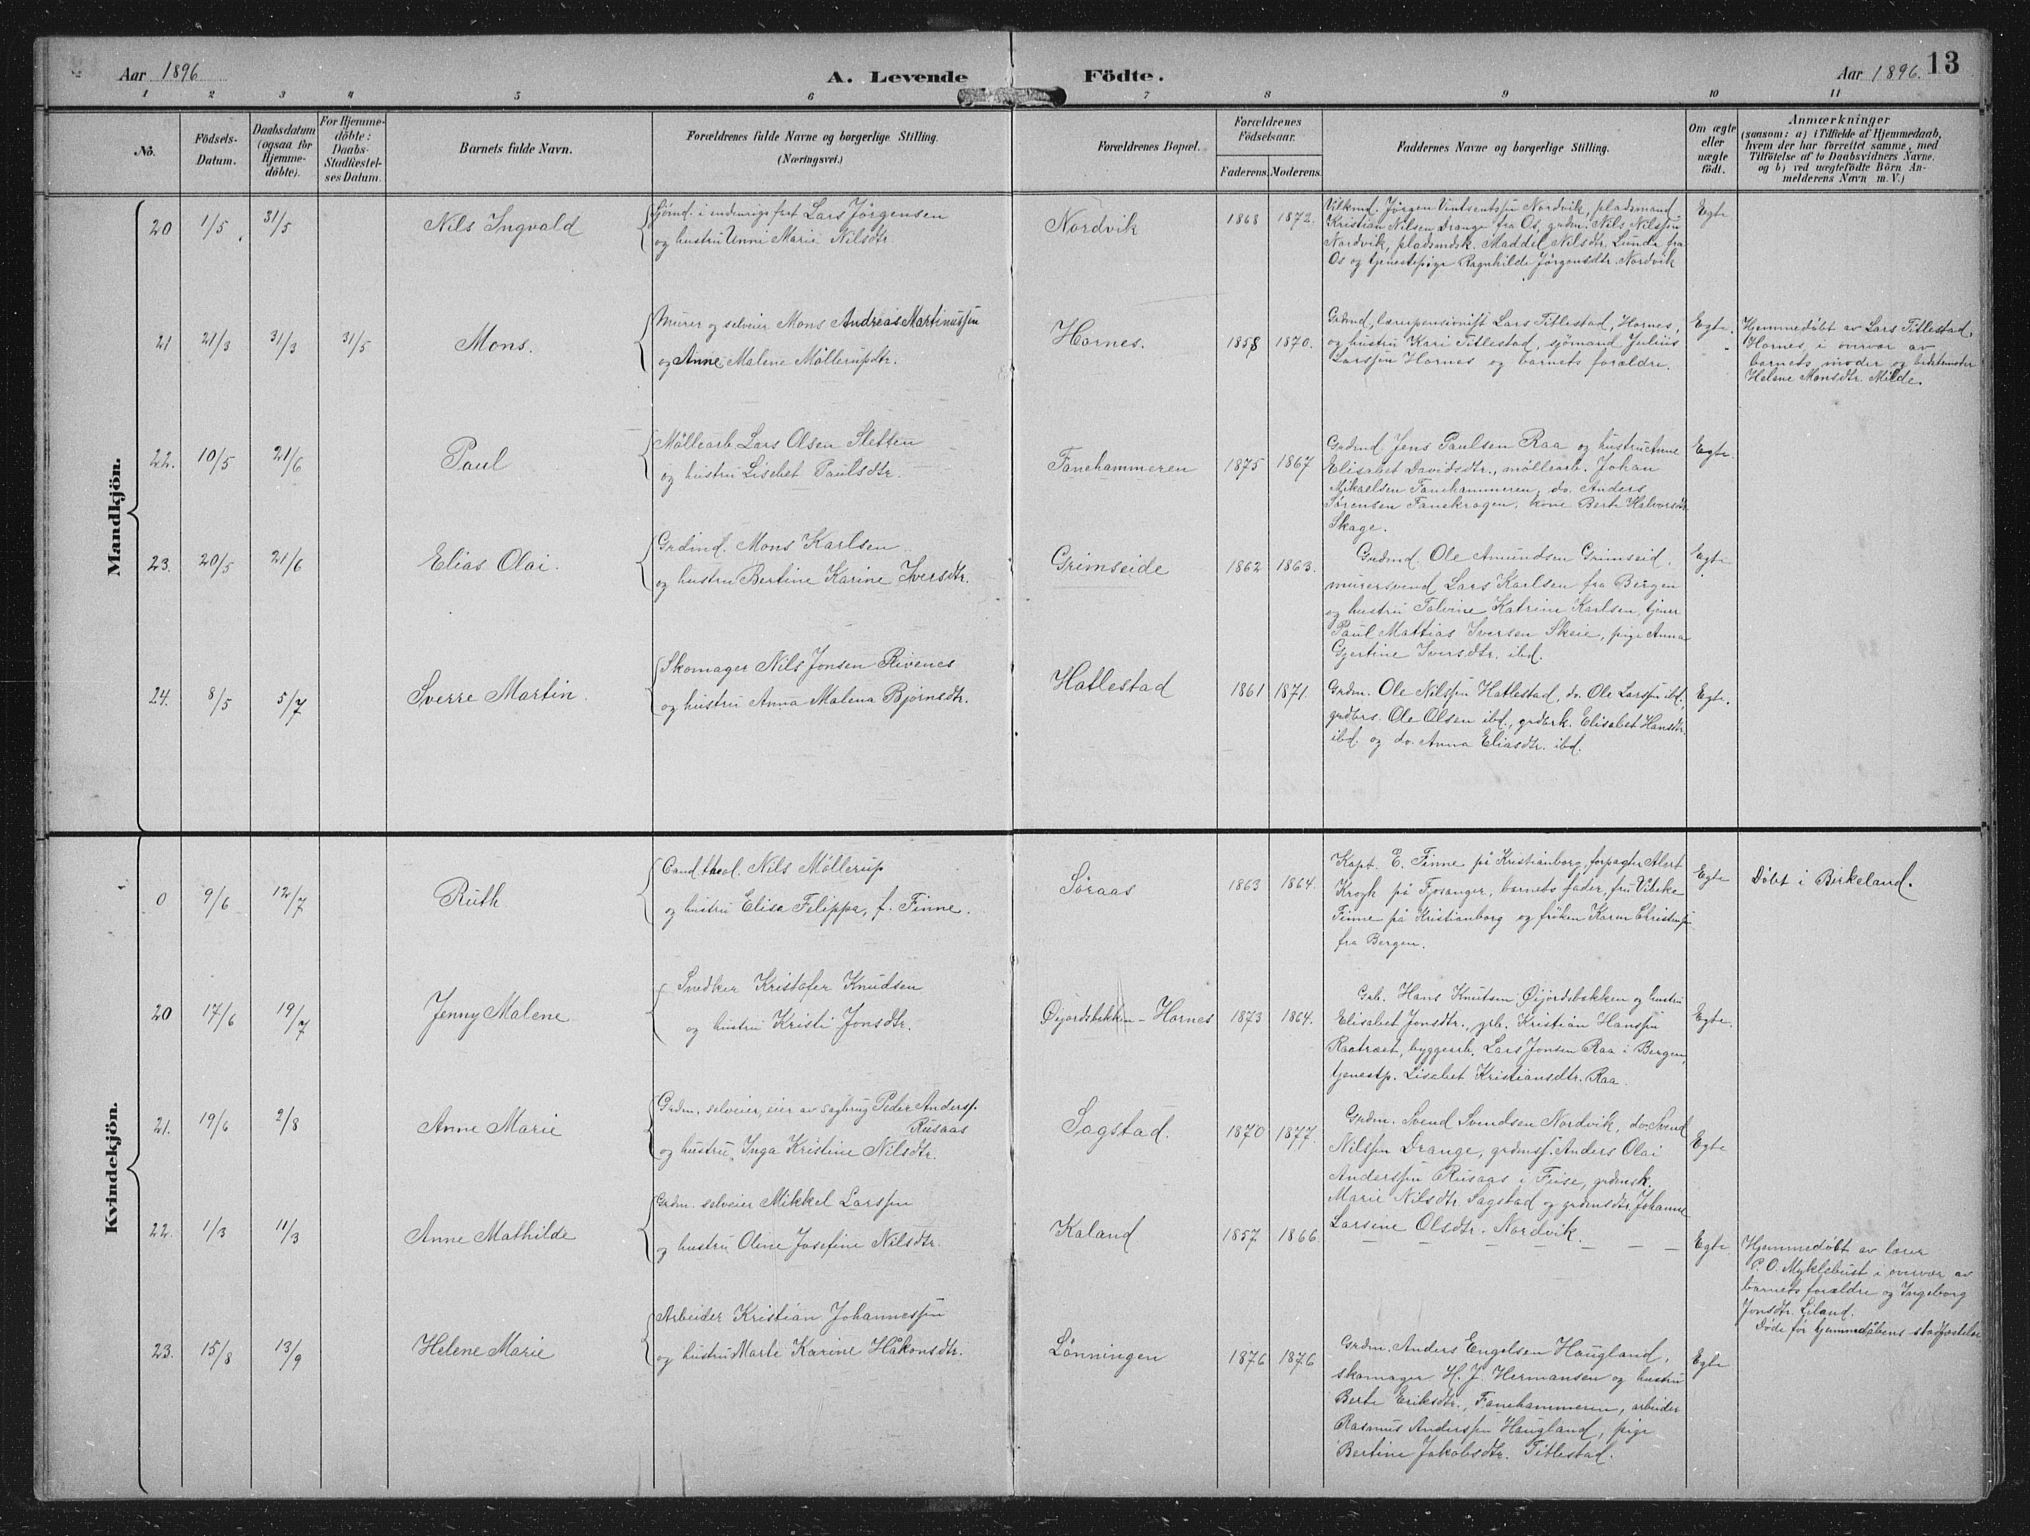 Aar 1896
A. Levende Födte.
Aar 1896.
13
1 2 3 4 5 6 7 8 9 10 11
No.
Födsels-
Datum.
Daabsdatum
(ogsaa for
Hjemme-
döbte).
For Hjemme-
döbte:
Daabs-
Stadfæstel-
ses Datum.
Barnets fulde Navn.
Forældrenes fulde Navne og borgerlige Stilling.
(Næringsvei.)
Forældrenes Bopæl.
Forældrenes
Födselsaar.
Faderens. Moderens.
Faddernes Navne og borgerlige Stilling.
Om ægte
eller
uægte
födt.
Anmærkninger
(saasom: a) i Tilfælde af Hjemmedaab,
hvem der har forrettet samme, med
Tilföielse af to Daabsvidners Navne,
og b) ved uægtefödte Börn An-
melderens Navn m. V.)
Mandkjön.
20 1/5 31/5
Nils Ingvald
Sjömd. i indenrigsfart Lars Jørgensen
og hustru Unni Marie Nilsdtr.
Nordvik
1868 1872.
Vilkmd. Jørgen Vintsentssen Nordvik, pladsmand
Kristian Nilsen Drange fra Os, grdm. Nils Nilssen
Nordvik, pladsmdsk. Maddel Nilsdtr. Lunde fra
Os og tjenestepige Ragnhilde Jørgensdtr. Nordvik
Egte
21 21/3 31/3 31/5
Mons.
Murer og selveier Mons Andreas Martinussen
og Anne Malene Möllerupdtr.
Hornes.
1858 1870.
Grdmd, lærerpensionist Lars Titlestad, Hornes,
og hustru Kari Titlestad, sjömand Julius
Larssen Hornes og barnets forældre.
Egte.
Hjemmedöbt av Lars Titlestad
Hornes, i overvær av
barnets moder og bedstemoder
Helene Monsdtr. Milde.
22. 10/5 21/6
Paul
Møllearb. Lars Olsen Sletten
og hustru Lisebet Paulsdtr.
Fanehammeren
1875 1867
Grdmd Jens Paulsen Raa og hustru Anne
Elisabet Davidsdtr., møllearb. Johan
Mikaelsen Fanehammeren, do. Anders
Sørensen Fanekrogen, kone Berte Halvorsdtr.
Skage.
Egte.
23. 20/5 21/6
Elias Olai.
Grdmd. Mons Karlsen
og hustru Bertine Karine Iversdtr.
Grimseide
1862 1863.
Grdmd. Ole Amundsen Grimseid,
murersvend Lars Karlsen fra Bergen
og hustru Talvine Katrine Karlsen, tjener
Paul Mattias Iversen Skeie, pige Anna
Gjertine Iversdtr. ibd.
Egte
24. 8/5 5/7
Sverre Martin.
Skomager Nils Jonsen Rivenes
og hustru Anna Malena Bjørnsdtr.
Hatlestad
1861 1871.
Grdm. Ole Nilssen Hatlestad, do. Ole Larssen ibd.,
grdbrs. Ole Olsen ibd., grdbrk. Elisabet Hansdtr.
ibd. og do. Anna Eliasdtr. ibd.
Egte.
Kvindekjön.
0 9/6 12/7
Ruth
Cand. theol. Nils Möllerup
og hustru Elisa Filippa, f. Finne.
Søraas
1863 1864.
Kapt. E. Finne på Kristianborg, forpagter Alert
Krogh på Fjøsanger, barnets fader, fru Vibeke
Finne på Kristianborg og frøken Karen Christensen
fra Bergen.
Egte
Döbt i Birkeland.
20 17/6 19/7
Jenny Malene
Snedker Kristofer Knudsen
og hustru Kristi Jonsdtr.
Øijordsbekken - Hornes
1873 1864.
Grb. Hans Knutsen Øijordsbekken og hustru
Elisabet Jonsdtr., grb. Kristian Hanssen
Raatræet, byggearb. Lars Jonsen Raa i Bergen,
tjenestp. Lisabet Kristiansdtr. Raa.
Egte.
21. 19/6 2/8
Anne Marie
Grdm. selveier, eier av sagbrug Peder Anderss.
Rusaas
og hustru Inga Kristine Nilsdtr.
Sagstad.
1870 1877.
Grdm. Svend Svendsen Nordvik, do. Svend
Nilssen Drange, grdmss. Anders Olai
Anderssen Rusaas i Fuse, grdmsk.
Marie Nilsdtr. Sagstad og grdmsdtr. Johanne
Larsine Olsdtr. Nordvik.
Egte
22. 1/3 11/3
Anne Mathilde
Grdm. selveier Mikkel Larssen
og hustru Oline Josefine Nilsdtr.
Kaland
1857 1866.
— — — — — — —
Egte
Hjemmedöbt av lærer
P. O. Myklebust i overvær av
barnets forældre og Ingeborg
Jonsdtr. Liland.
Døde før hjemmedåbens stadfæstelse
23. 15/8 13/9
Helene Marie
Arbeider Kristian Johannessen
og hustru Marte Karine Håkonsdtr.
Lønningen
1876 1876
Grdm. Anders Engelsen Haugland,
skomager H. J. Hermansen og hustru
Berte Eriksdtr., Fanehammeren, arbeider
Rasmus Anderssen Haugland, pige
Bertine Jakobsdtr. Titlestad.
Egte